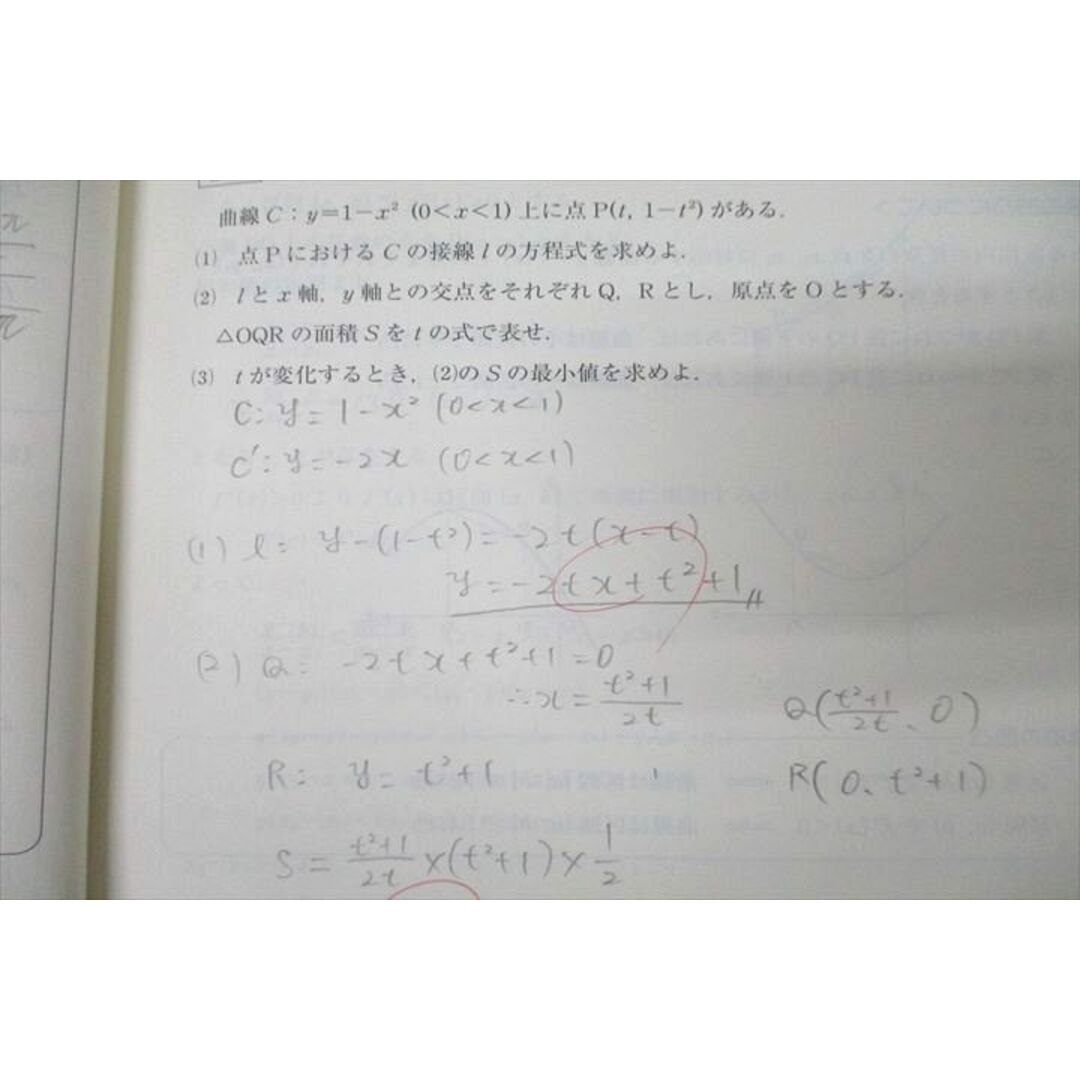 曲線 C：y=1−x² (0<x<1) 上に点 P(t, 1−t²) がある.
(1) 点 P における C の接線 l の方程式を求めよ.
(2) l と x 軸, y 軸との交点をそれぞれ Q, R とし, 原点を O とする.
△OQR の面積 S を t の式で表せ.
(3) t が変化するとき, (2)の S の最小値を求めよ.
C: y = 1 − x² (0<x<1)
C': y = −2x (0<x<1)
(1) l: y−(1−t²) = −2t(x−t)
y = −2tx + t² + 1
(2) Q: −2tx + t² + 1 = 0
∴ x = \frac{t²+1}{2t}
Q(\frac{t²+1}{2t}、0)
R: y = t²+1
R(0、t²+1)
S = \frac{t²+1}{2t} × (t²+1) × \frac{1}{2}